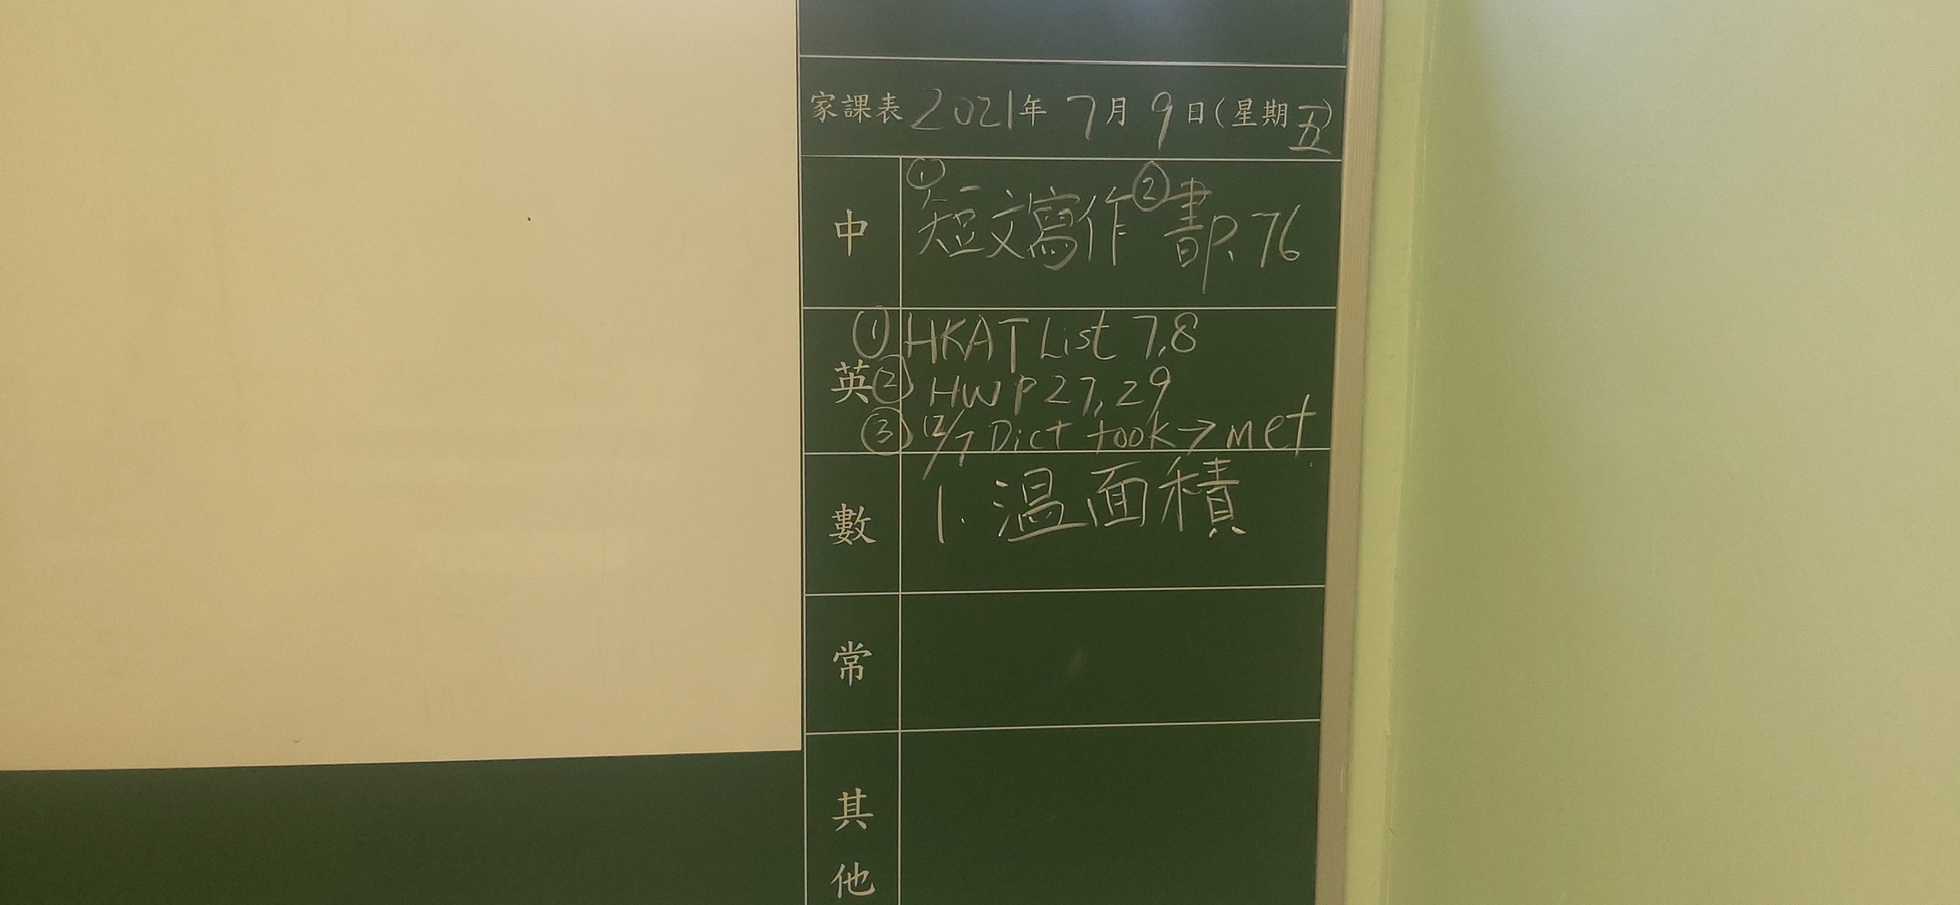 家課表 2021年 7月 9日(星期五)
中 ①短文寫作 ②書P.76
①HKAT List 7,8
英 ② HW P 27, 29
③ 12/7 Dict took→met
數 1. 温面積
常
其
他